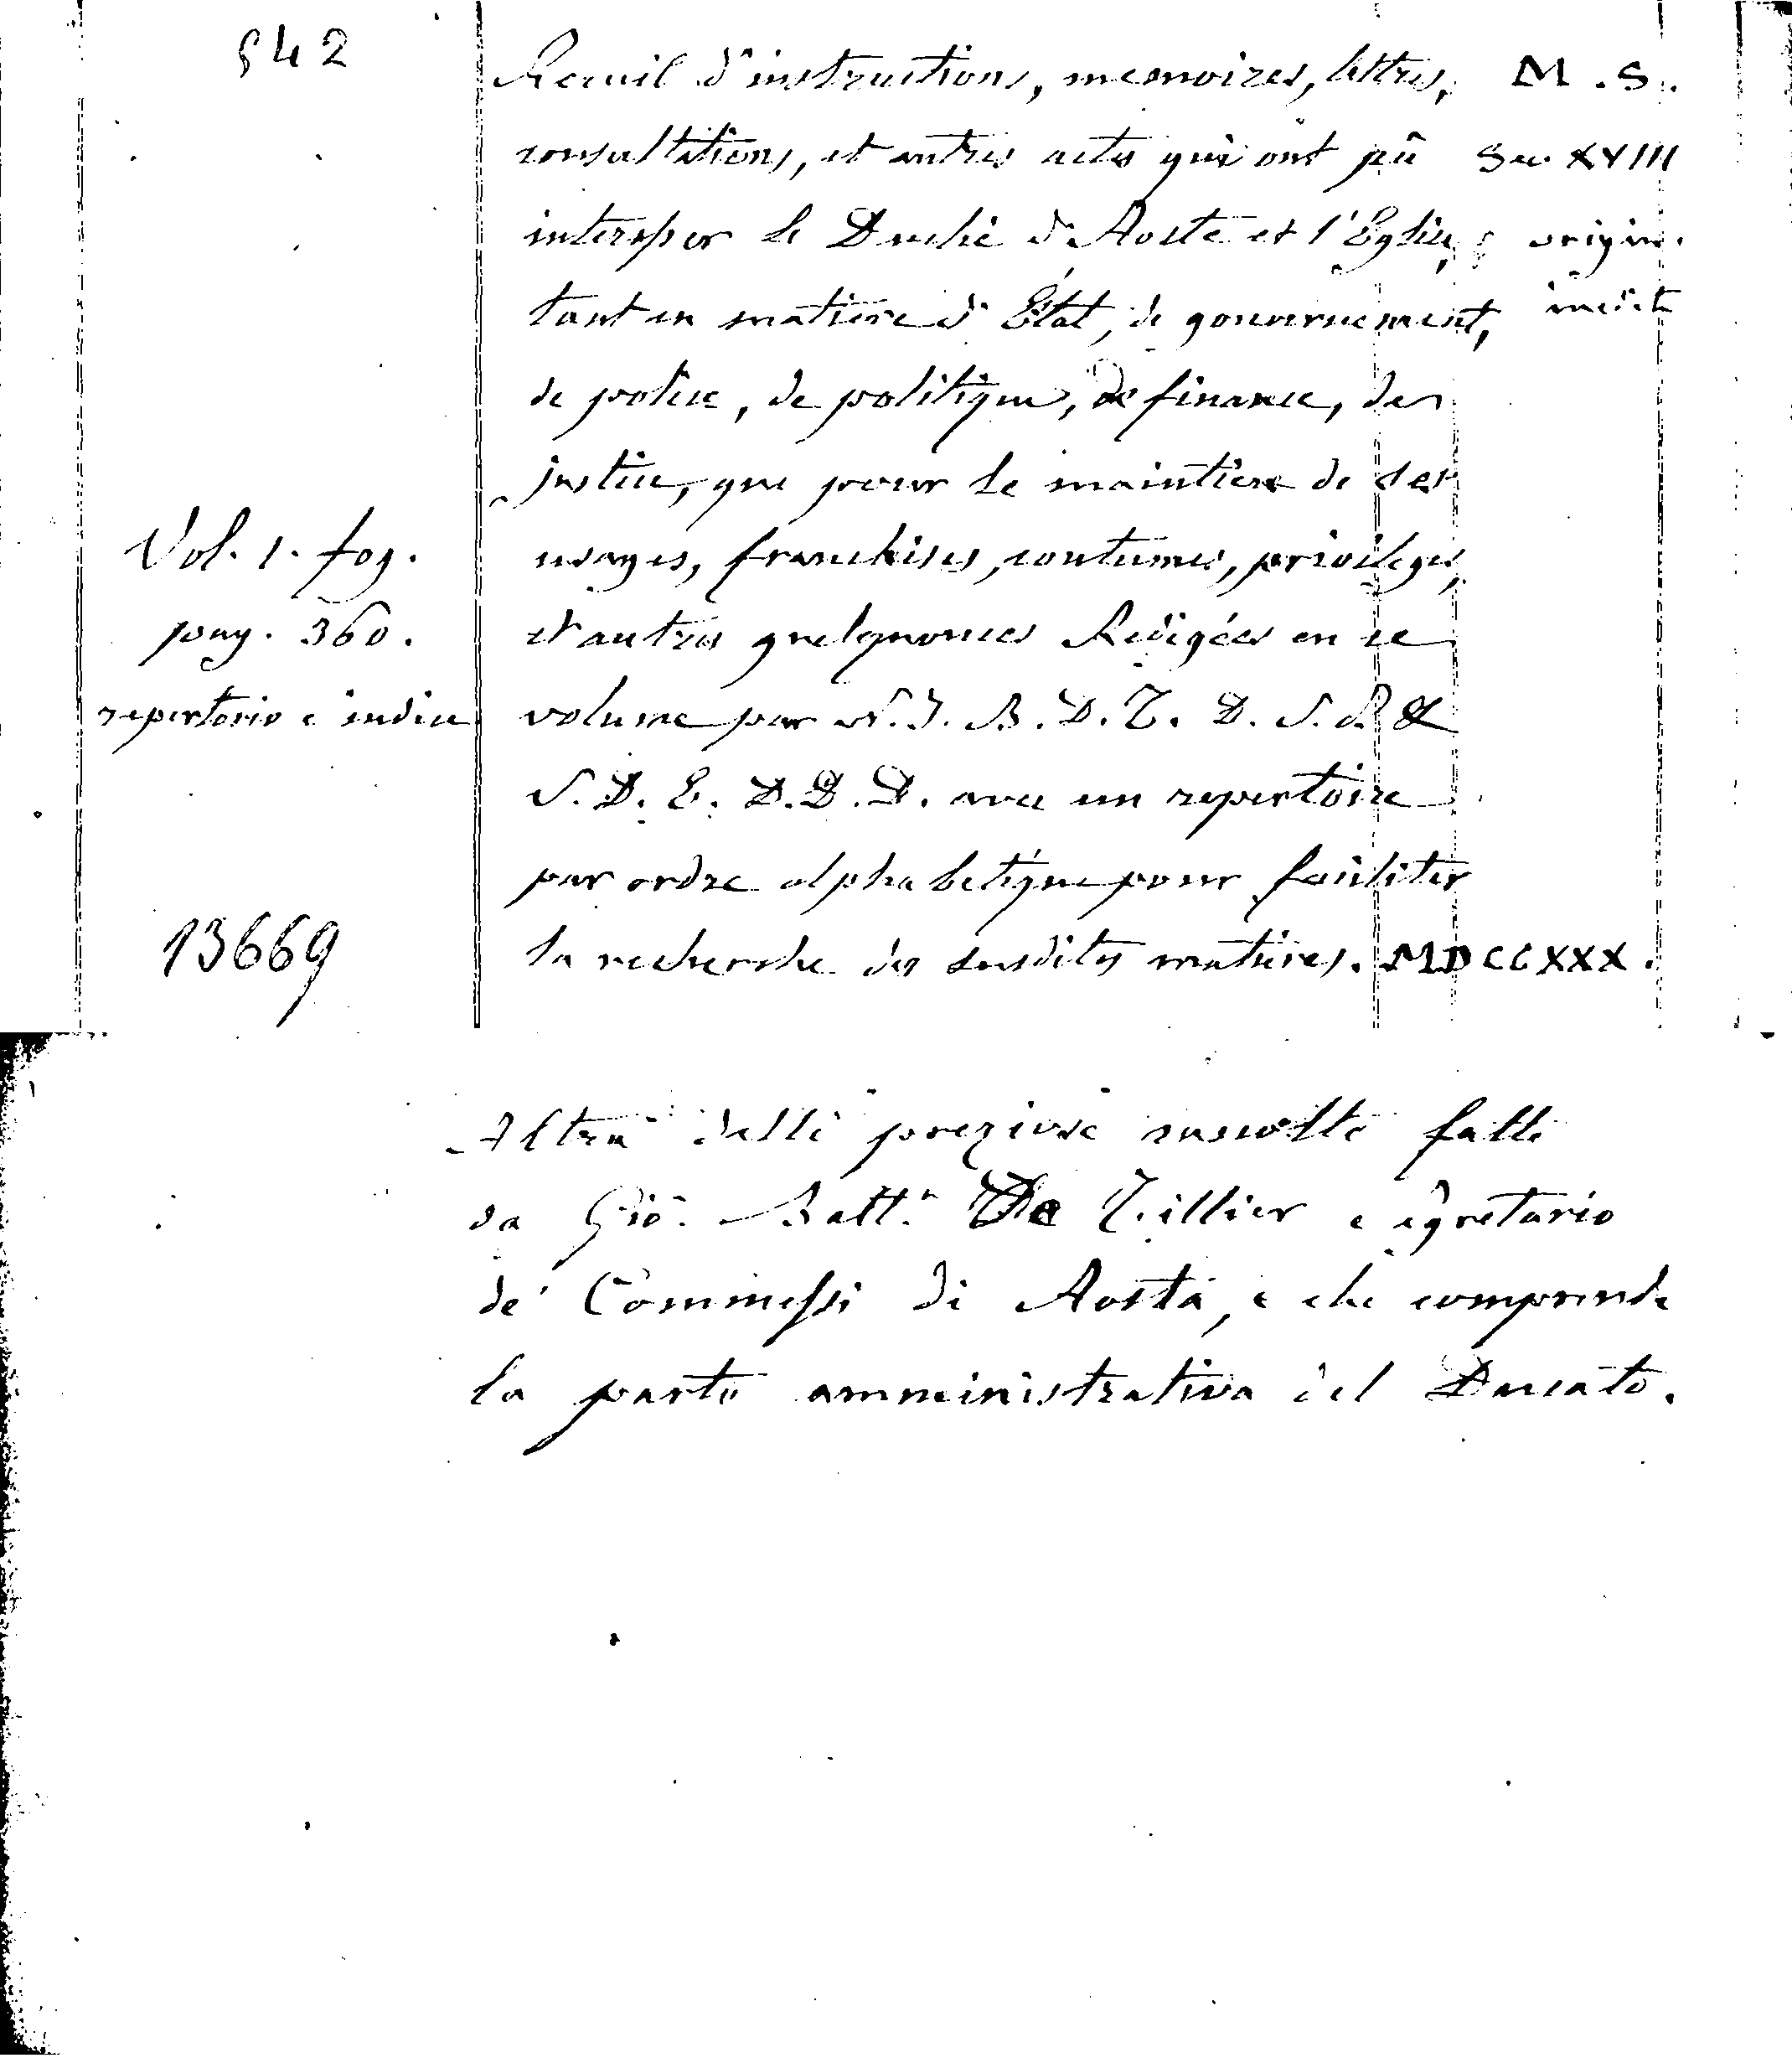 542
Recueil d'instructions, memoires, lettres, M.S.
consultations, et autres actes qui ont pû Sec. XVIII
interesser le Duché d'Aoste et l'Eglise, origin.
tant en matiere d'Etat, de gouvernement, inedito
de police, de politique, de finance, de
justice, que pour le maintien de ses
Vol. 1. fog.
usages, franchises, coutumes, privileges,
pag. 360.
et autres quelquonces Redigées en ce
repertorio e indice
volume par N. J. B. D. T. D. S. R &
S. D. E. D. D. D. avec un repertoire
par ordre alphabetique pour faciliter
13669
la recherche des susdites matières. MDCCXXX.
Altra delle preziose raccolte fatte
da Gio. Batt.a De Tillier segretario
de' Commessi di Aosta, e che comprende
la parte amministrativa del Ducato.